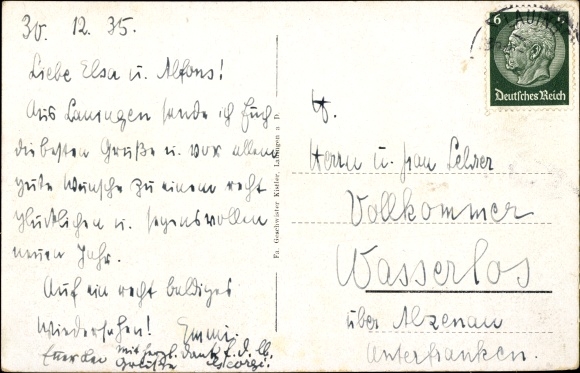 30. 12. 35.
Liebe Elsa u. Alfons!
Aus Lauingen sende ich Euch
die besten Grüße u. vor allem
gute Wünsche zu einem recht
glücklichen u. segensvollen
neuen Jahr.
Auf ein recht baldiges
Wiedersehen! Emmi.
mit herzl. Dank f. d. lb.
Grüße Georg.
Fa. Geschwister Kistler, Lauingen a D.
LAUINGEN
6
Deutsches Reich
Herrn u. Frau Lehrer
Vollkommer
Wasserlos
über Alzenau
Unterfranken.